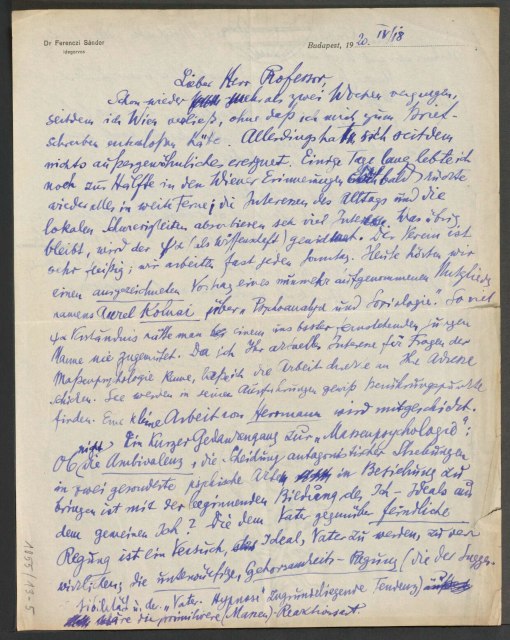 Dr Ferenczi Sándor
idegorvos
Budapest, 1920. IV/18
Lieber Herr Professor,
Schon wieder mehr als zwei Wochen vergangen,
seitdem ich Wien verließ, ohne daß ich mich zum Brief-
schreiben entschloßen hätte. Allerdings hat sich seitdem
nichts außergewöhnliches ereignet. Einige Tage lang lebte ich
noch zur Hälfte in den Wiener Erinnerungen bald rückte
wieder alles in weite Ferne; die Interessen des Alltags und die
lokalen Schwierigkeiten absorbieren sehr viel Interesse. Was übrig
bleibt, wird der ψα (als Wissenschaft) gewidmet. Der Verein ist
sehr fleißig; wir arbeiten fast jeden Sonntag. Heute hörten wir
einen ausgezeichneten Vortrag eines nunmehr aufgenommenen Mitglieds
namens Aurel Kolnai über "Psychoanalyse und Soziologie". So viel
ψα Verständnis hätte man einem ins bester jungen
Manne nie zugemutet. Da ich Ihr aktuelles Interesse für Fragen der
Maßenpsychologie kenne, die Arbeit an Ihre Adresse
schicken. Sie werden in seinen Ausführungen gewiß Berührungspunkte
finden. Eine kleine Arbeit von Herrmann wird mitgeschickt.
Ein kurzer Gedankengang zur "Massenpsychologie":
Ob nicht die Ambivalenz, die Scheidung antagonistischer Strebungen
in zwei gesonderte psychische Akten in Beziehung zu
bringen ist mit der beginnenden Bildung des Ich-Ideals aus
dem gemeinen Ich? Die dem Vater gegenüber feindliche
Regung ist ein Versuch, das Ideal, Vater zu werden, zu ver-
wirklichen; die unterwürfige, Gehorsamkeits-Regung (die der Sugge-
stibilität u. der "Vater-Hypnose" zugrundeliegende Tendenz)
wäre die primitivere (Massen)-Reaktionsart
1855/13.5